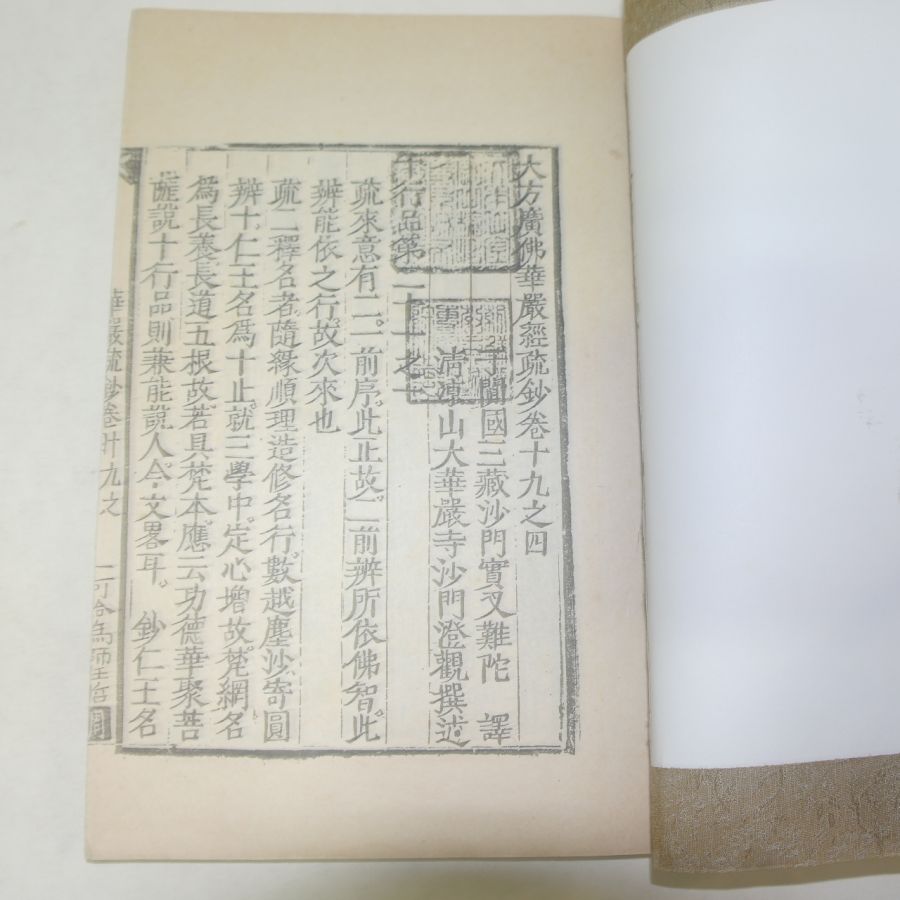 大方廣佛華嚴經疏鈔卷十九之四
于闐國三藏沙門實叉難陀 譯
清凉山大華嚴寺沙門澄觀撰述
十行品第二十一之一
疏來意有二。一前序。此正故。二前辨所依佛智。此
辨能依之行。故次來也
疏二釋名者。隨緣順理造修名行。數越塵沙。寄圓
辨十。仁王名為十止。就三學中。定心增故。梵網名
為長養。長道五根故。若具梵本。應云功德華聚菩
薩說十行品。則兼能說人。今文畧耳。 鈔仁王名
華嚴疏鈔卷十九之